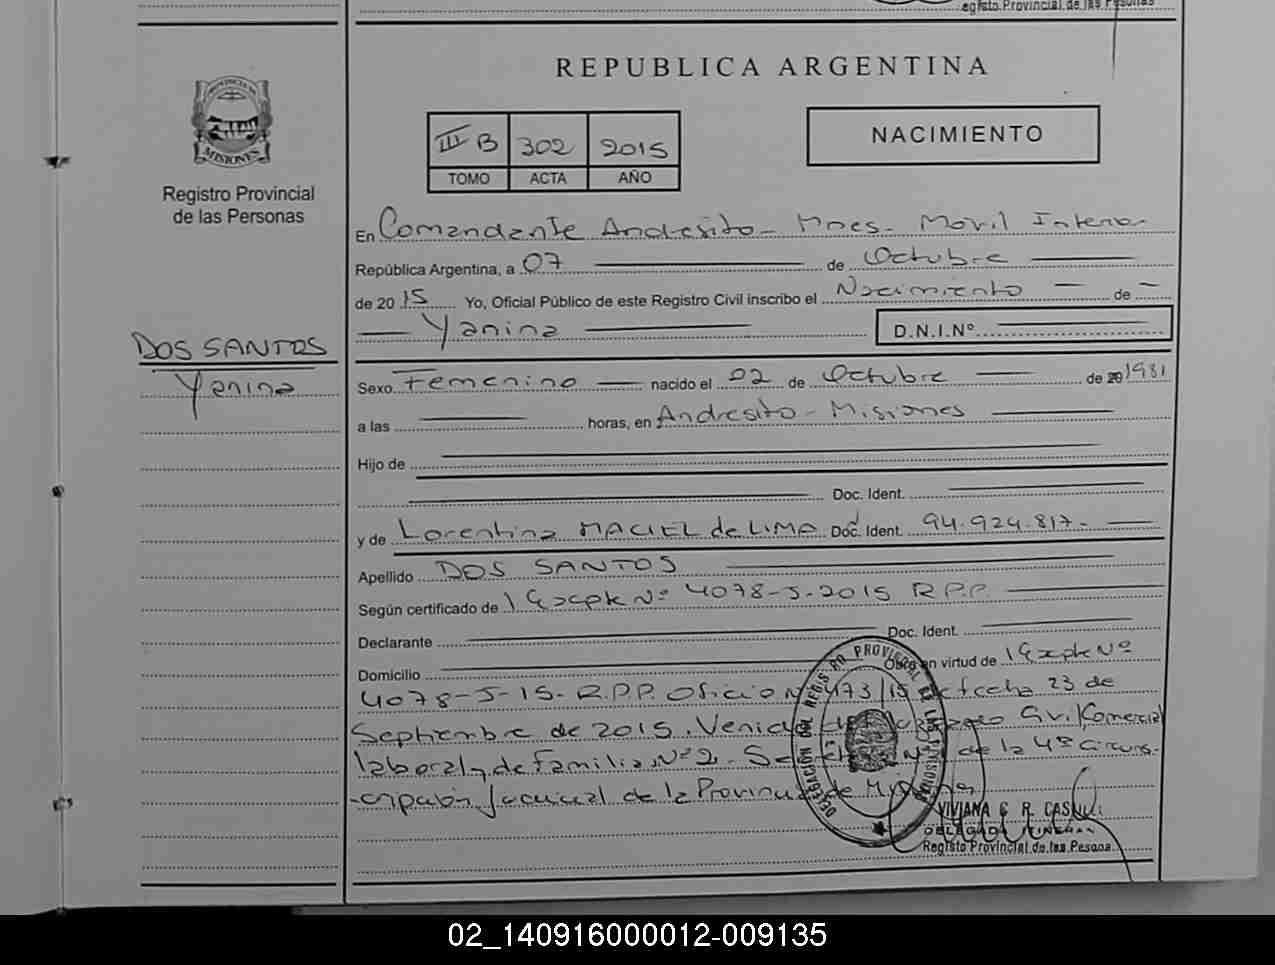 Registro Provincial de las Personas
REPUBLICA ARGENTINA
PROVINCIA DE
MISIONES
Registro Provincial
de las Personas
III B 302 2015
TOMO ACTA AÑO
NACIMIENTO
En Comandante Andresito - Mnes - Movil Intera
República Argentina, a 07 de Octubre
de 2015 Yo, Oficial Público de este Registro Civil inscribo el Nacimiento de
Yanina D.N.I.Nº
DOS SANTOS
Yanina
Sexo Femenino nacido el 02 de Octubre de 20 1981
a las horas, en Andresito - Misiones
Hijo de
Doc. Ident.
y de Lorentina MACIEL de LIMA Doc. Ident. 94.924.817-
Apellido DOS SANTOS
Según certificado de Expte Nº 4078-J-2015 R.P.P.
Declarante Doc. Ident.
Domicilio Obra en virtud de Expte Nº
4078-J-15- R.P.P. Oficio Nº 473/15 de fecha 23 de
Septiembre de 2015. Venido del Juzgado Civil, Comercial
laboral y de Familia Nº 2 - Nº de la 4º Circuns-
-cripción Judicial de la Provincia de Misiones
DELEGACIÓN DEL REGISTRO PROVINCIAL DE LAS PERSONAS
VIVIANA G. R.
DELEGADA ITINERAN
Registo Provincial de las Pesona
02_140916000012-009135